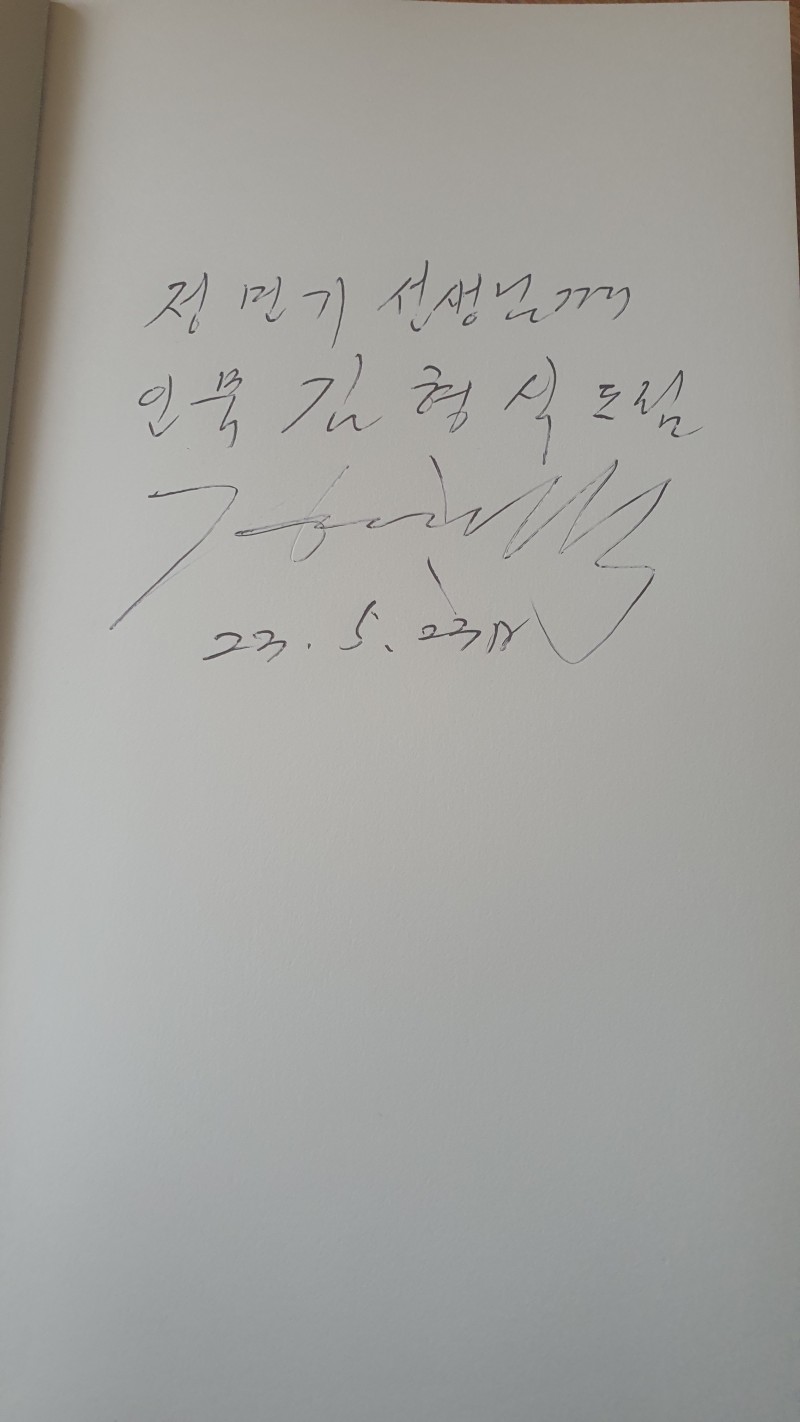 정민기 선생님께
인묵 김형식 드림
23. 5. 23